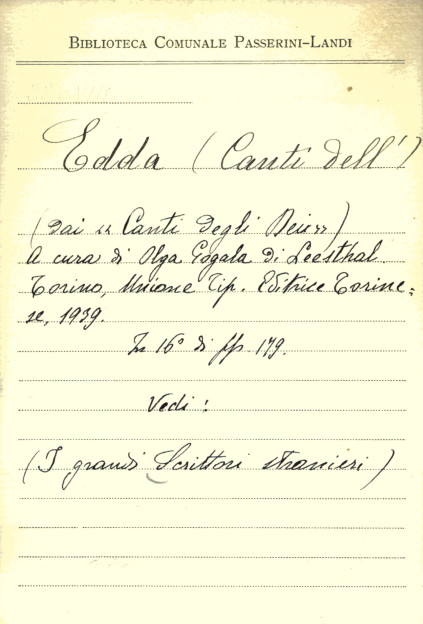 BIBLIOTECA COMUNALE PASSERINI-LANDI
Edda (Canti dell')
(Dai « Canti degli Dei »)
A cura di Olga Gogala di Leesthal.
Torino, Unione Tip. Editrice Torine=
se, 1939.
In 16° di pp 179.
Vedi:
(I grandi Scrittori stranieri)